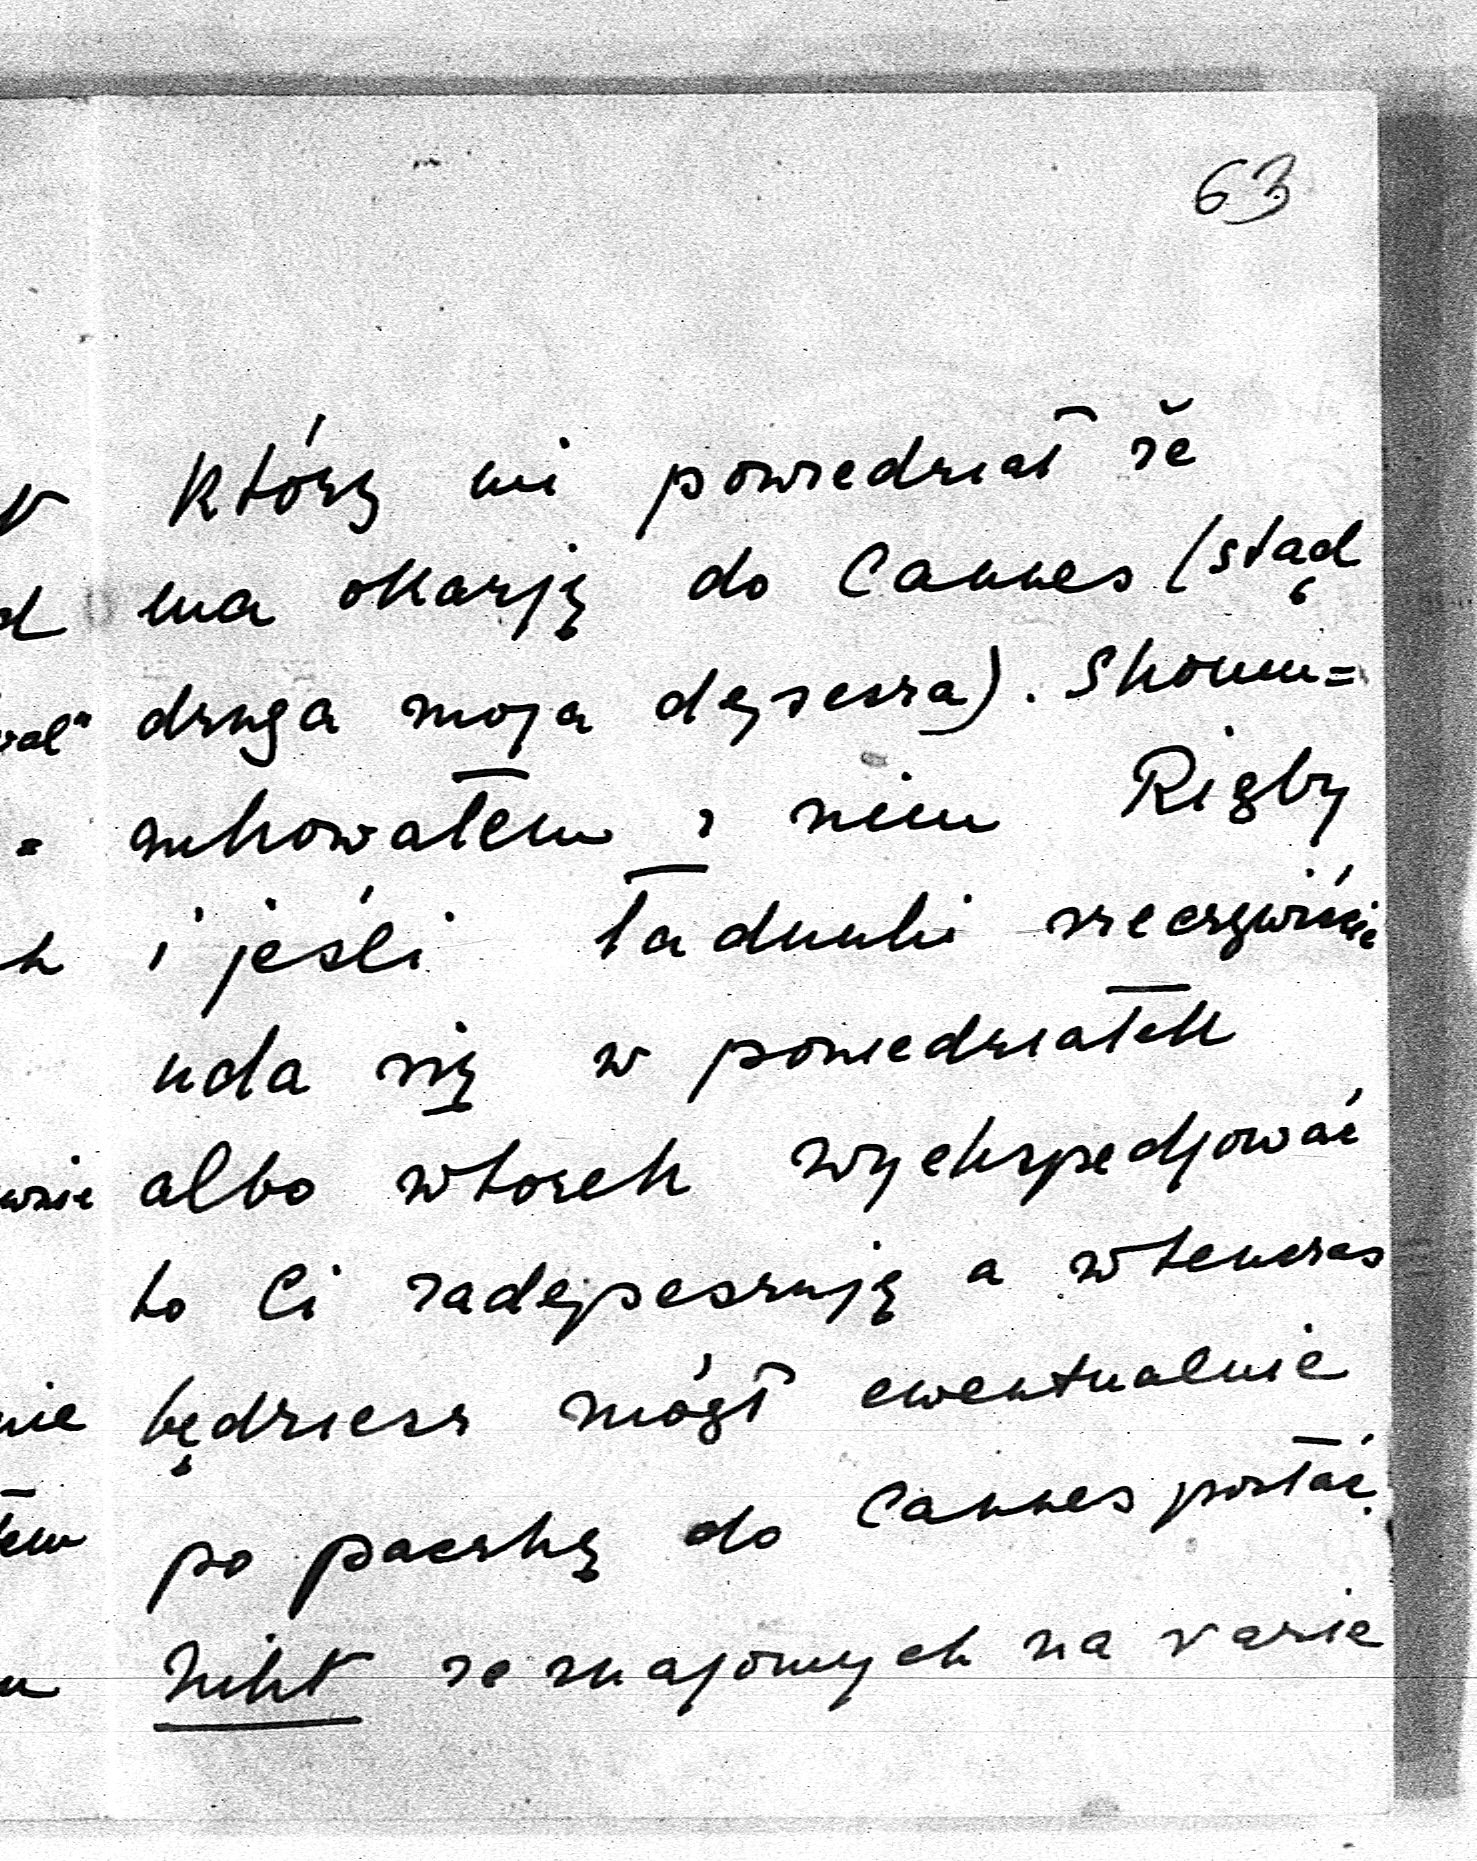 63
który mi powiedział że
ma okazję do Cannes (stąd
druga moja depesza). Skomu=
nikowałem z nim Rigby
i jeśli ładunki rzeczywiście
uda się w poniedziałek
albo wtorek wyekspedjować
to Ci zadepeszuję a wtenczas
będziesz mógł ewentualnie
po paczkę do Cannes posłać.
Nikt ze znajomych na razie